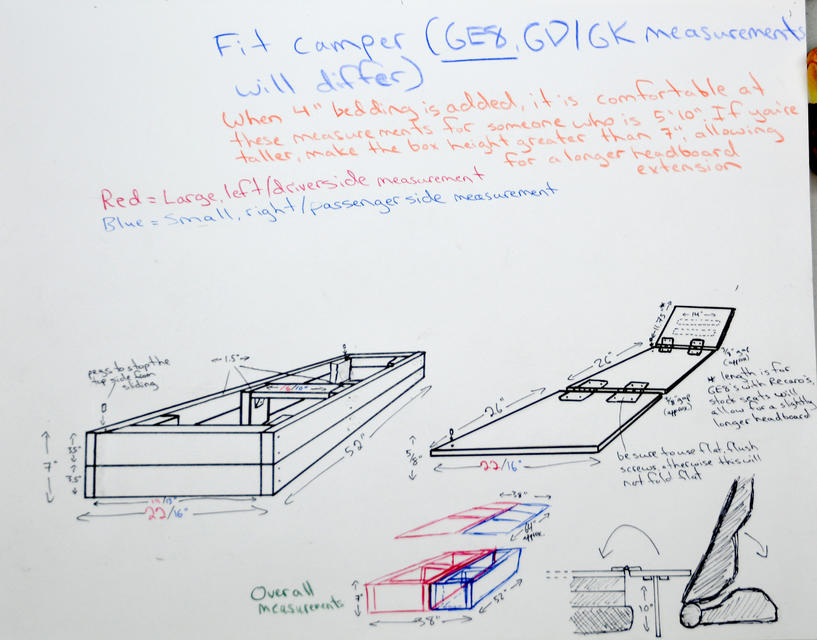 Fit camper (GE8, GD/GK measurements
will differ)
When 4" bedding is added, it is comfortable at
these measurements for someone who is 5'10". If you're
taller, make the box height greater than 7", allowing
for a longer headboard
extension
Red = Large, left/driverside measurement
Blue = Small, right/passenger side measurement
pegs to stop the
top side from
sliding
1.5"
7"
3.5"
3.5"
52"
22/16"
14"
11.75"
*
26"
26"
3/8" gap
(approx)
3/8" gap
(approx)
* length is for
GE8's with Recaro's,
stock seats will
allow for a slightly
longer headboard
5/8"
22/16"
be sure to use flat, flush
screws, otherwise this will
not fold flat
38"
64"
approx
Overall
measurements
7"
52"
38"
10"